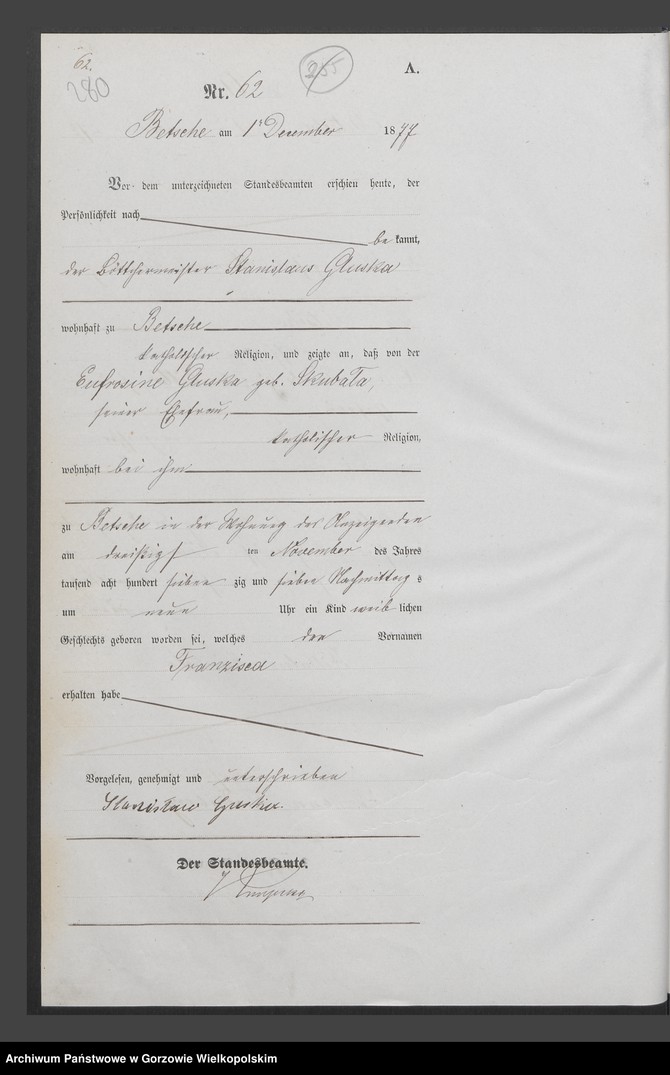 62.
280
255
A.
Nr. 62
Betsche am 1t December 1877
Vor dem unterzeichneten Standesbeamten erschien heute, der
Persönlichkeit nach
bekannt,
der Böttchermeister Stanislaus Gluska
wohnhaft zu Betsche
katholischer Religion, und zeigte an, daß von der
Eufrosine Gluska geb. Skubała,
seiner Ehefrau,
katholischer Religion,
wohnhaft bei ihm
zu Betsche in der Wohnung des Anzeigenden
am dreißigsten November des Jahres
tausend acht hundert siebenzig und sieben Nachmittags
um neun Uhr ein Kind weiblichen
Geschlechts geboren worden sei, welches den Vornamen
Franzisca
erhalten habe
Vorgelesen, genehmigt und unterschrieben
Stanisław
Der Standesbeamte.
Archiwum Państwowe w Gorzowie Wielkopolskim